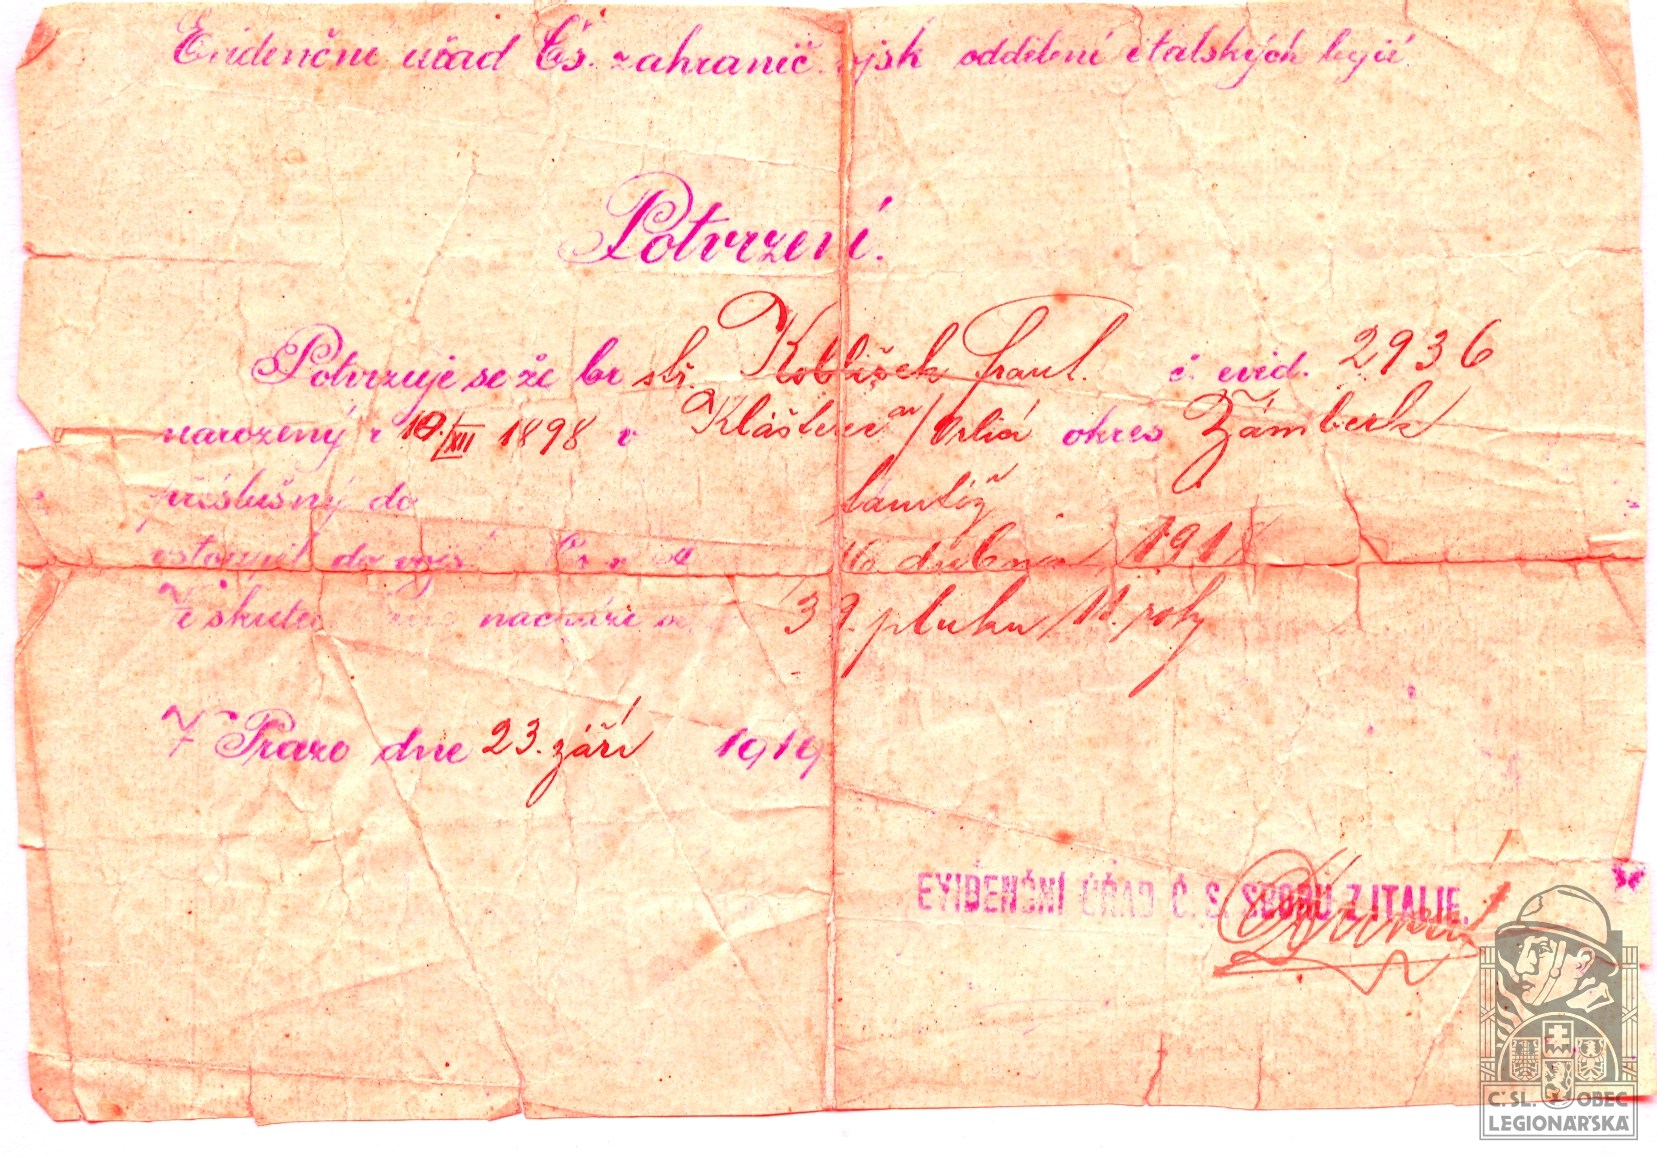 Evidenčne uřad Čs. zahranič. vojsk oddělení italských legií.
Potvrzení.
Potvrzuje se že br stř. Koblišek Frant. č. evid. 2936
narozený r 10./XII 1898 v Klášteře n/Orlicí okres Žamberk
příslušný do tamtéž
vstoupil do vojs Čs v 16. dubna 1918
Že skuteč nachází se 39. pluku 11. roty
V Praze dne 23. září 1919
EVIDENČNÍ ÚŘAD Č. S. SBORU Z ITALIE.
Č. SL. OBEC
LEGIONÁŘSKÁ